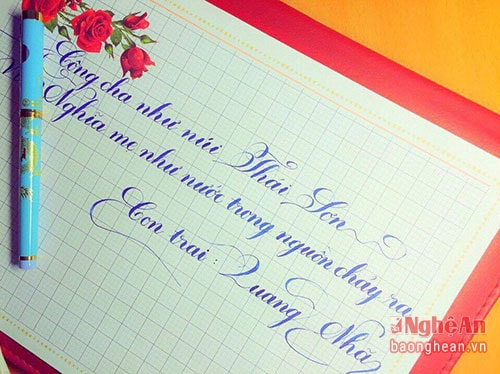 Công cha như núi Thái Sơn
Nghĩa mẹ như nước trong nguồn chảy ra
Con trai: Quang Nhã
NghệAn
baonghean.vn